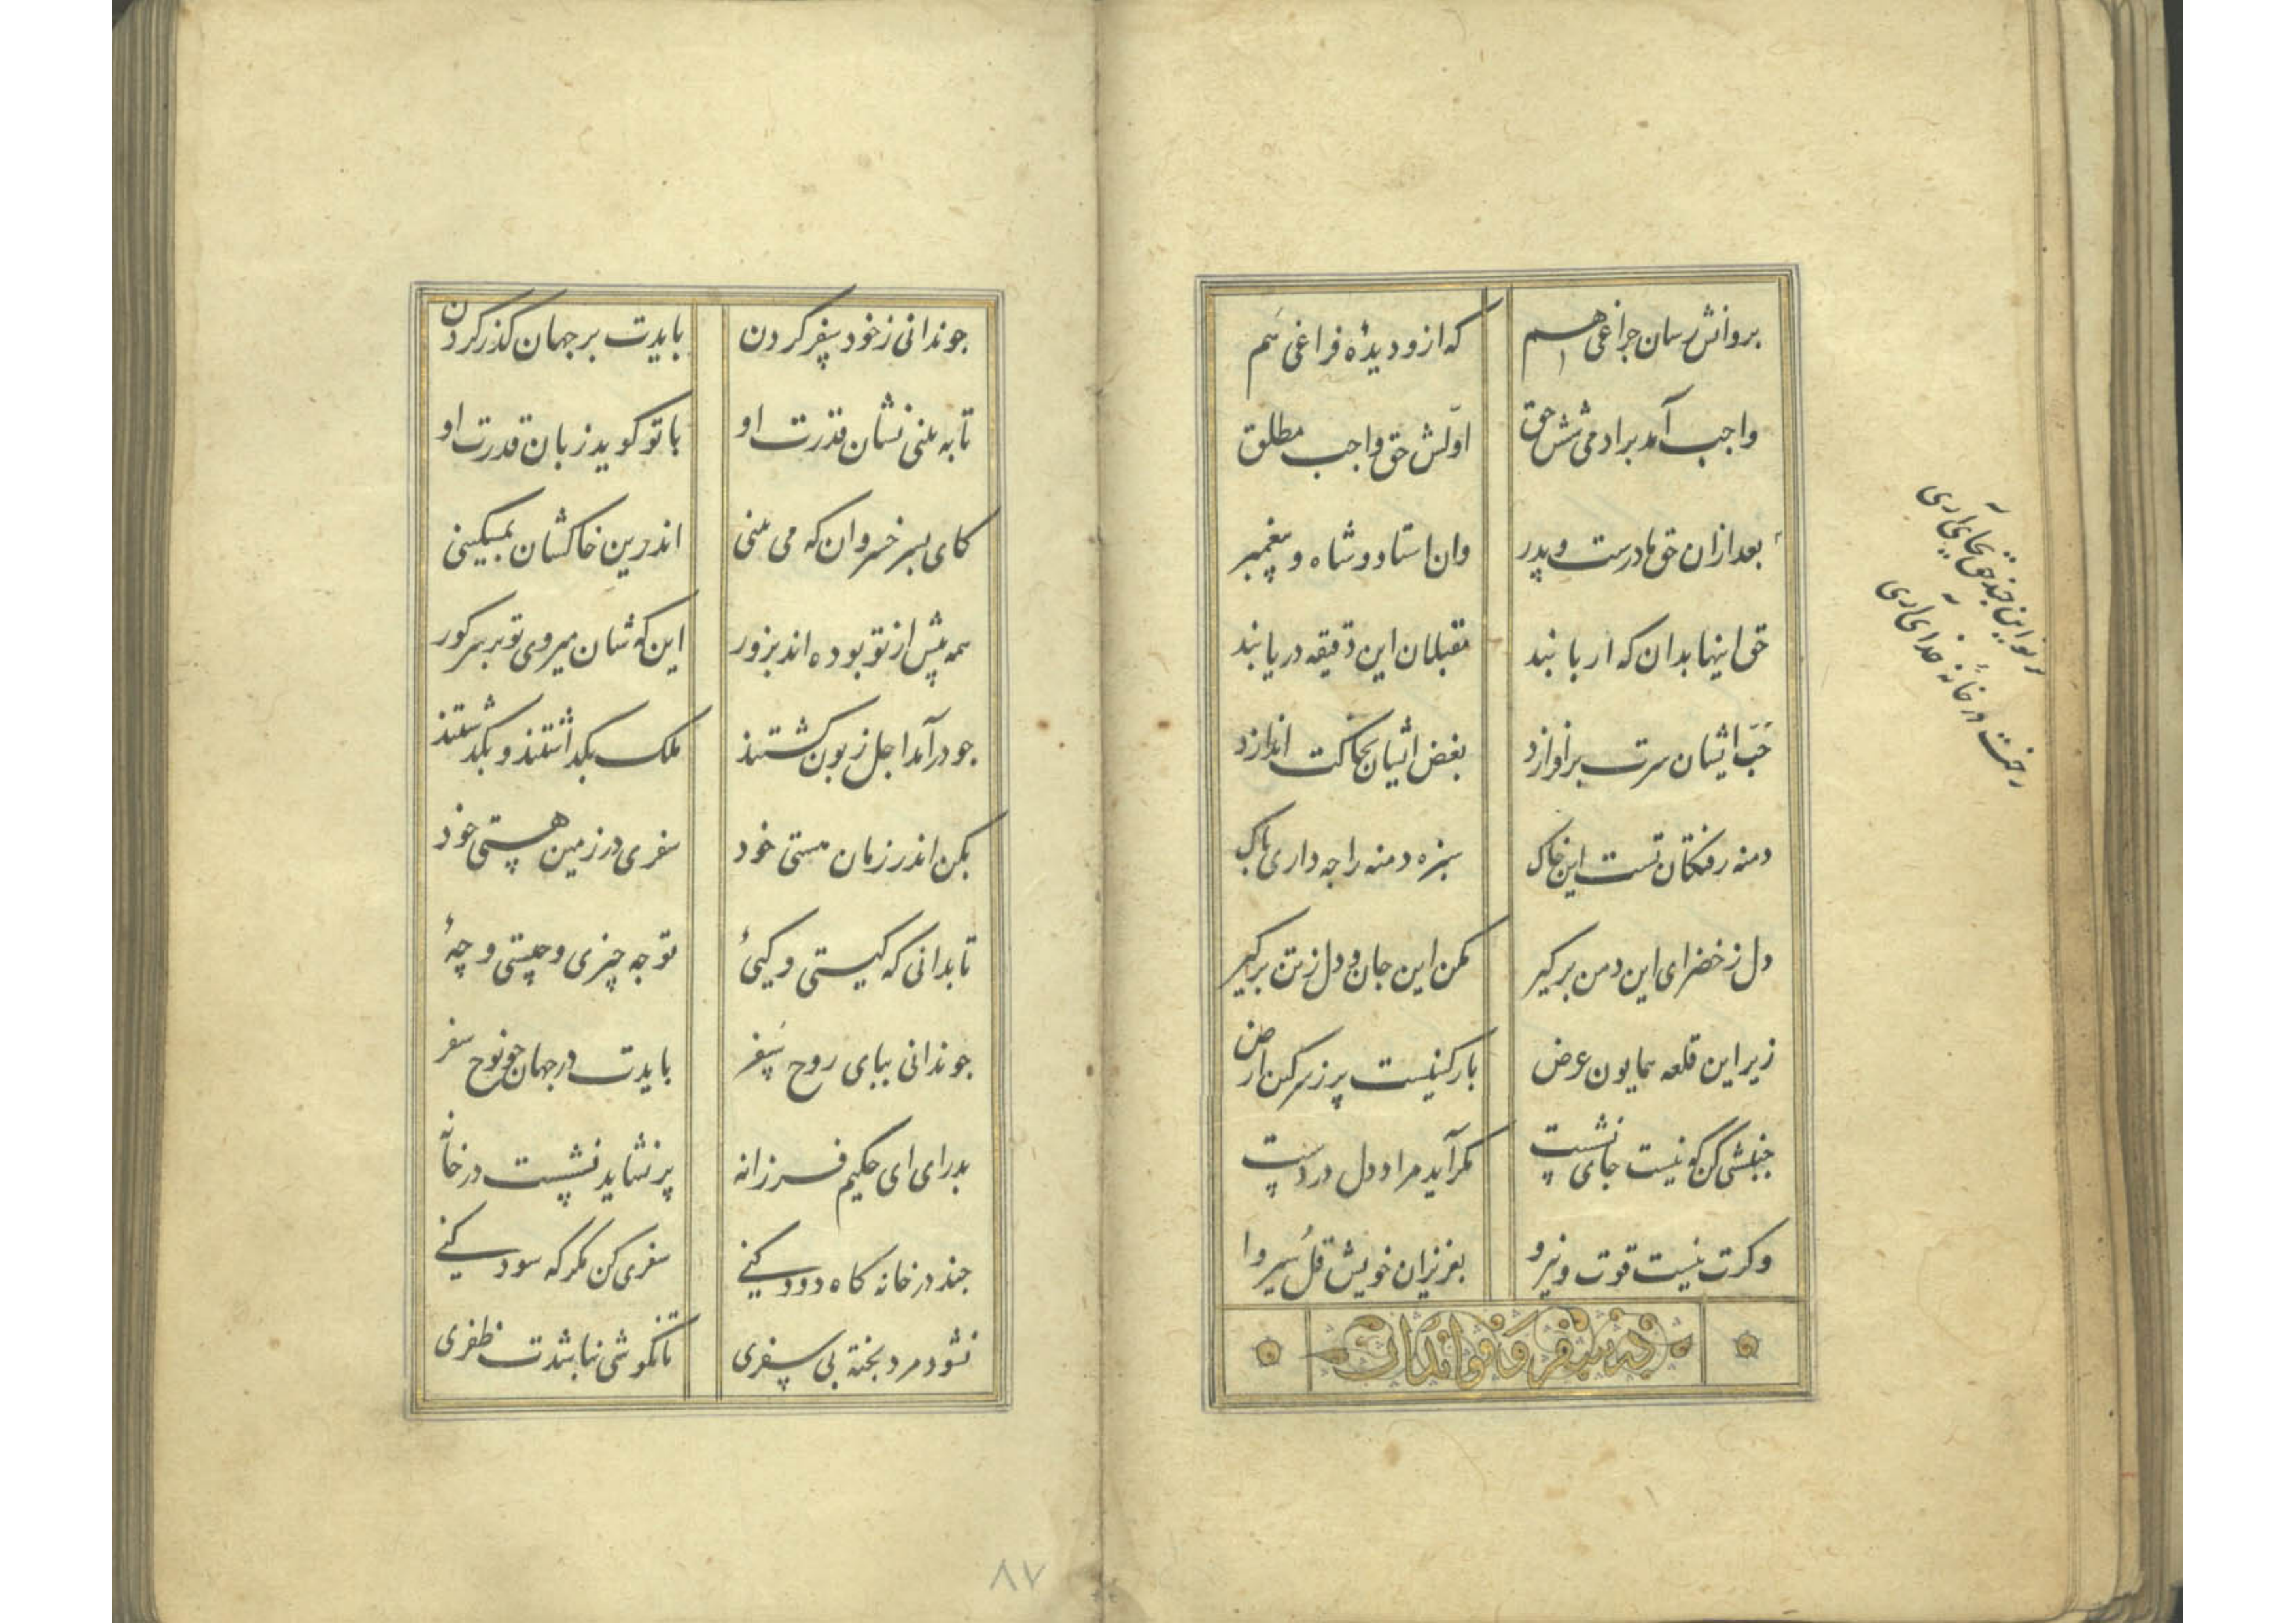 بروانش رسان چراغی هم که ازو دیدهٔ فراغی هم
واجب آمد بر ادمی شش حق اولش حق واجب مطلق
بعد ازان حق مادرست و پدر وان استاد و شاه و پیغمبر
حق اینها بدان که اربابند مقبلان این دقیقه دریابند
حب ایشان سرت برافرازد بغض ایشان بخاکت اندازد
دمنه رفتگان تست این خاک سبزه دمنه را جه داری پاک
دل ز خضرای این دمن برکیر بکن این جان و دل ز تن برکیر
زیر این قلعه همایون عرض بارکینیست پر ز سرکن ارض
جنبشی کن که نیست جای نشست مکر آید مراد دل در دست
وکرت نیست قوت و نیرو بعزیزان خویش قل سیروا
در سفر و فواید آن
ار تو این چند حق بجای آری
رخت در خانهٔ خدای آری
جو ندانی ز خود سفر کردن بایدت بر جهان کذر کردن
تا به بینی نشان قدرت او با تو کوید زبان قدرت او
کای پسر خسروان که می بینی اندرین خاکشان بمسکینی
همه پیش از تو بوده اند بزور این که شان میروی تو بر سر کور
جو درآمد اجل زبون کشتند ملک بکذاشتند و بکذشتند
بکن اندر زمان مستی خود سفری در زمین هستی خود
تا بدانی که کیستی و کیئ تو جه چیزی و چیستی و چهٔ
جو ندانی بپای روح سفر بایدت در جهان جو نوح سفر
بدر ای ای حکیم فرزانه پر نشاید نشست در خانه
جند در خانه کاه دود کنی سفری کن مکر که سود کنی
نشود مرد پخته بی سفری تا نکوشی نباشدت ظفری
۸۷